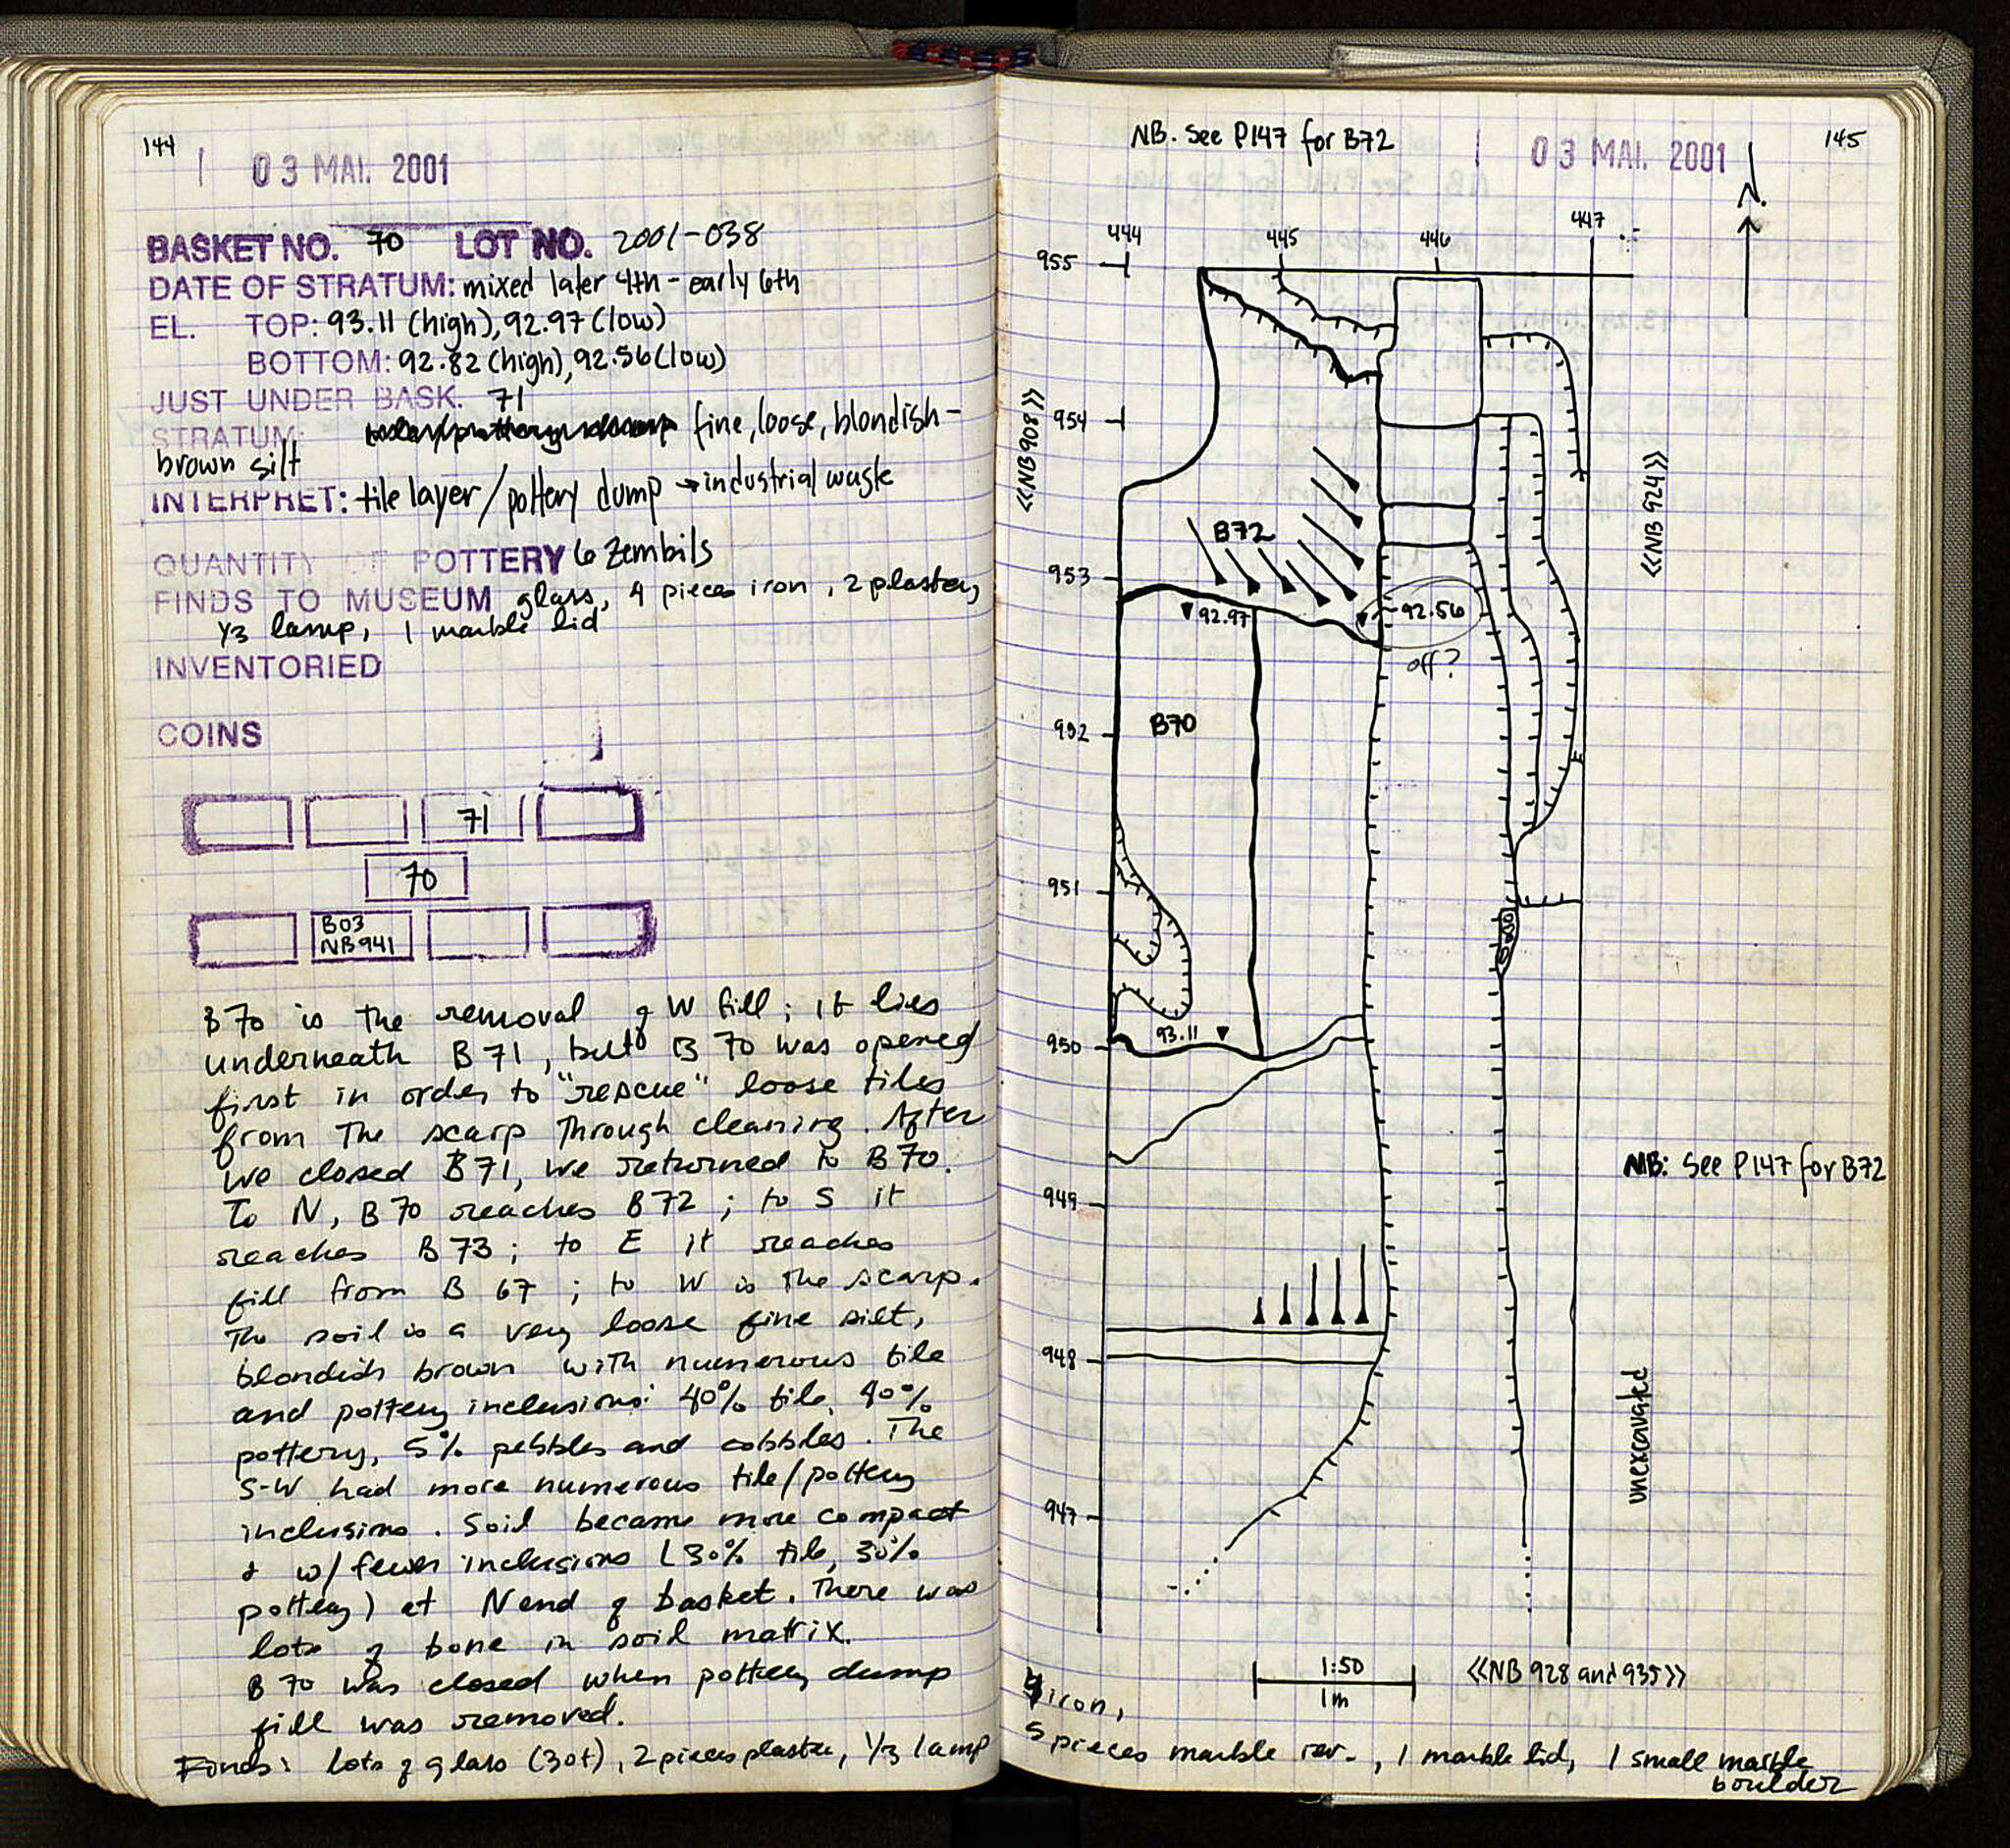 144
03 MAI. 2001
BASKET NO. 70 LOT NO. 2001-038
DATE OF STRATUM: mixed later 4th - early 6th
EL. TOP: 93.11 (high), 92.97 (low)
BOTTOM: 92.82 (high), 92.56 (low)
JUST UNDER BASK. 71
STRATUM: fine, loose, blondish-
brown silt
INTERPRET: tile layer/pottery dump → industrial waste
QUANTITY OF POTTERY 6 Zembils
FINDS TO MUSEUM glass, 4 pieces iron, 2 plaster,
1/3 lamp, 1 marble lid
INVENTORIED
COINS
71
70
B03
NB941
B70 is the removal of W fill; it lies
underneath B71, but B 70 was opened
first in order to "rescue" loose tiles
from the scarp through cleaning. After
we closed B71, we returned to B70.
To N, B70 reaches B72; to S it
reaches B73; to E it reaches
fill from B 67; to W is the scarp.
The soil is a very loose fine silt,
blondish brown with numerous tile
and pottery inclusions: 40% tile, 40%
pottery, 5% pebbles and cobbles. The
S-W had more numerous tile/pottery
inclusions. Soil became more compact
& w/ fewer inclusions (30% tile, 30%
pottery) at N end of basket. There was
lots of bone in soil matrix.
B 70 was closed when pottery dump
fill was removed.
Finds: lots of glass (30+), 2 pieces plaster, 1/3 lamp
NB. See P147 for B72
03 MAI. 2001
145
N.
444 445 446 447
955
954
<<NB 908>>
<<NB 924>>
B72
953
92.97
92.56
off?
952
B70
951
93.11
950
NB: See P147 for B72
949
948
unexcavated
947
1:50
1m
<<NB 928 and 935>>
4 iron,
5 pieces marble rev., 1 marble lid, 1 small marble
boulder